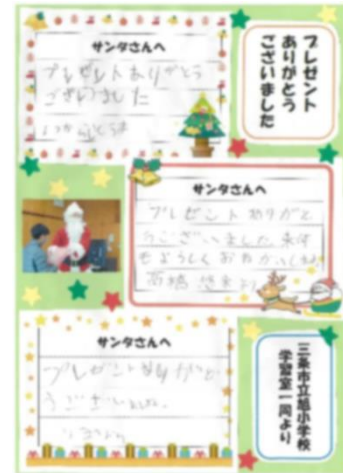 プレゼント
ありがとう
ございました
サンタさんへ
プレゼントありがとう
ございました
サンタさんへ
プレゼントありがと
うございました。来年
もよろしくおねがいします
高橋
より
サンタさんへ
プレゼントありがと
うございました。
より
三条市立旭小学校
学習室一同より